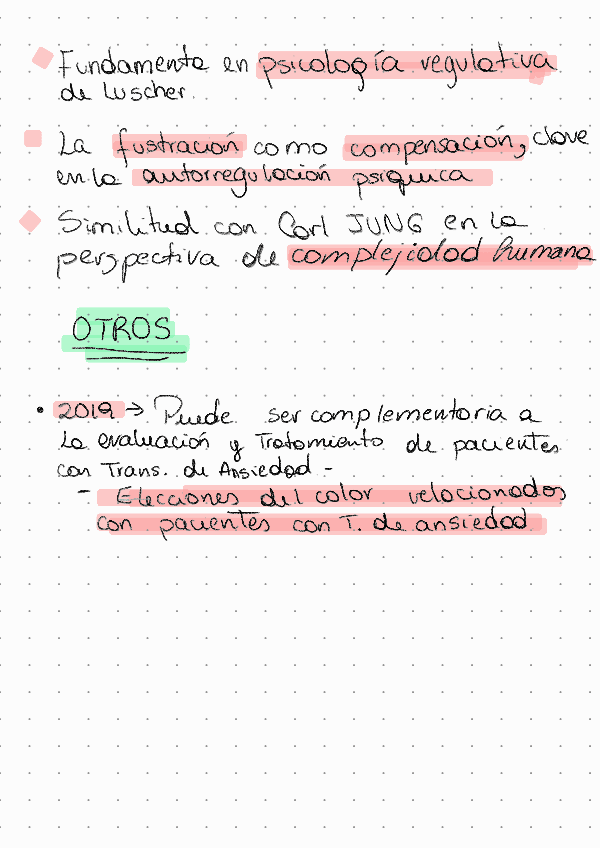 Fundamenta en psicología regulativa
de Luscher.
La fustración como compensación, clave
en la autorregulación psíquica
Similitud con Carl JUNG en la
perspectiva de complejidad humana
OTROS
• 2019 → Puede ser complementaria a
la evaluación y Tratamiento de pacientes
con Trans. de Ansiedad -
- Elecciones del color relacionados
con pacientes con T. de ansiedad